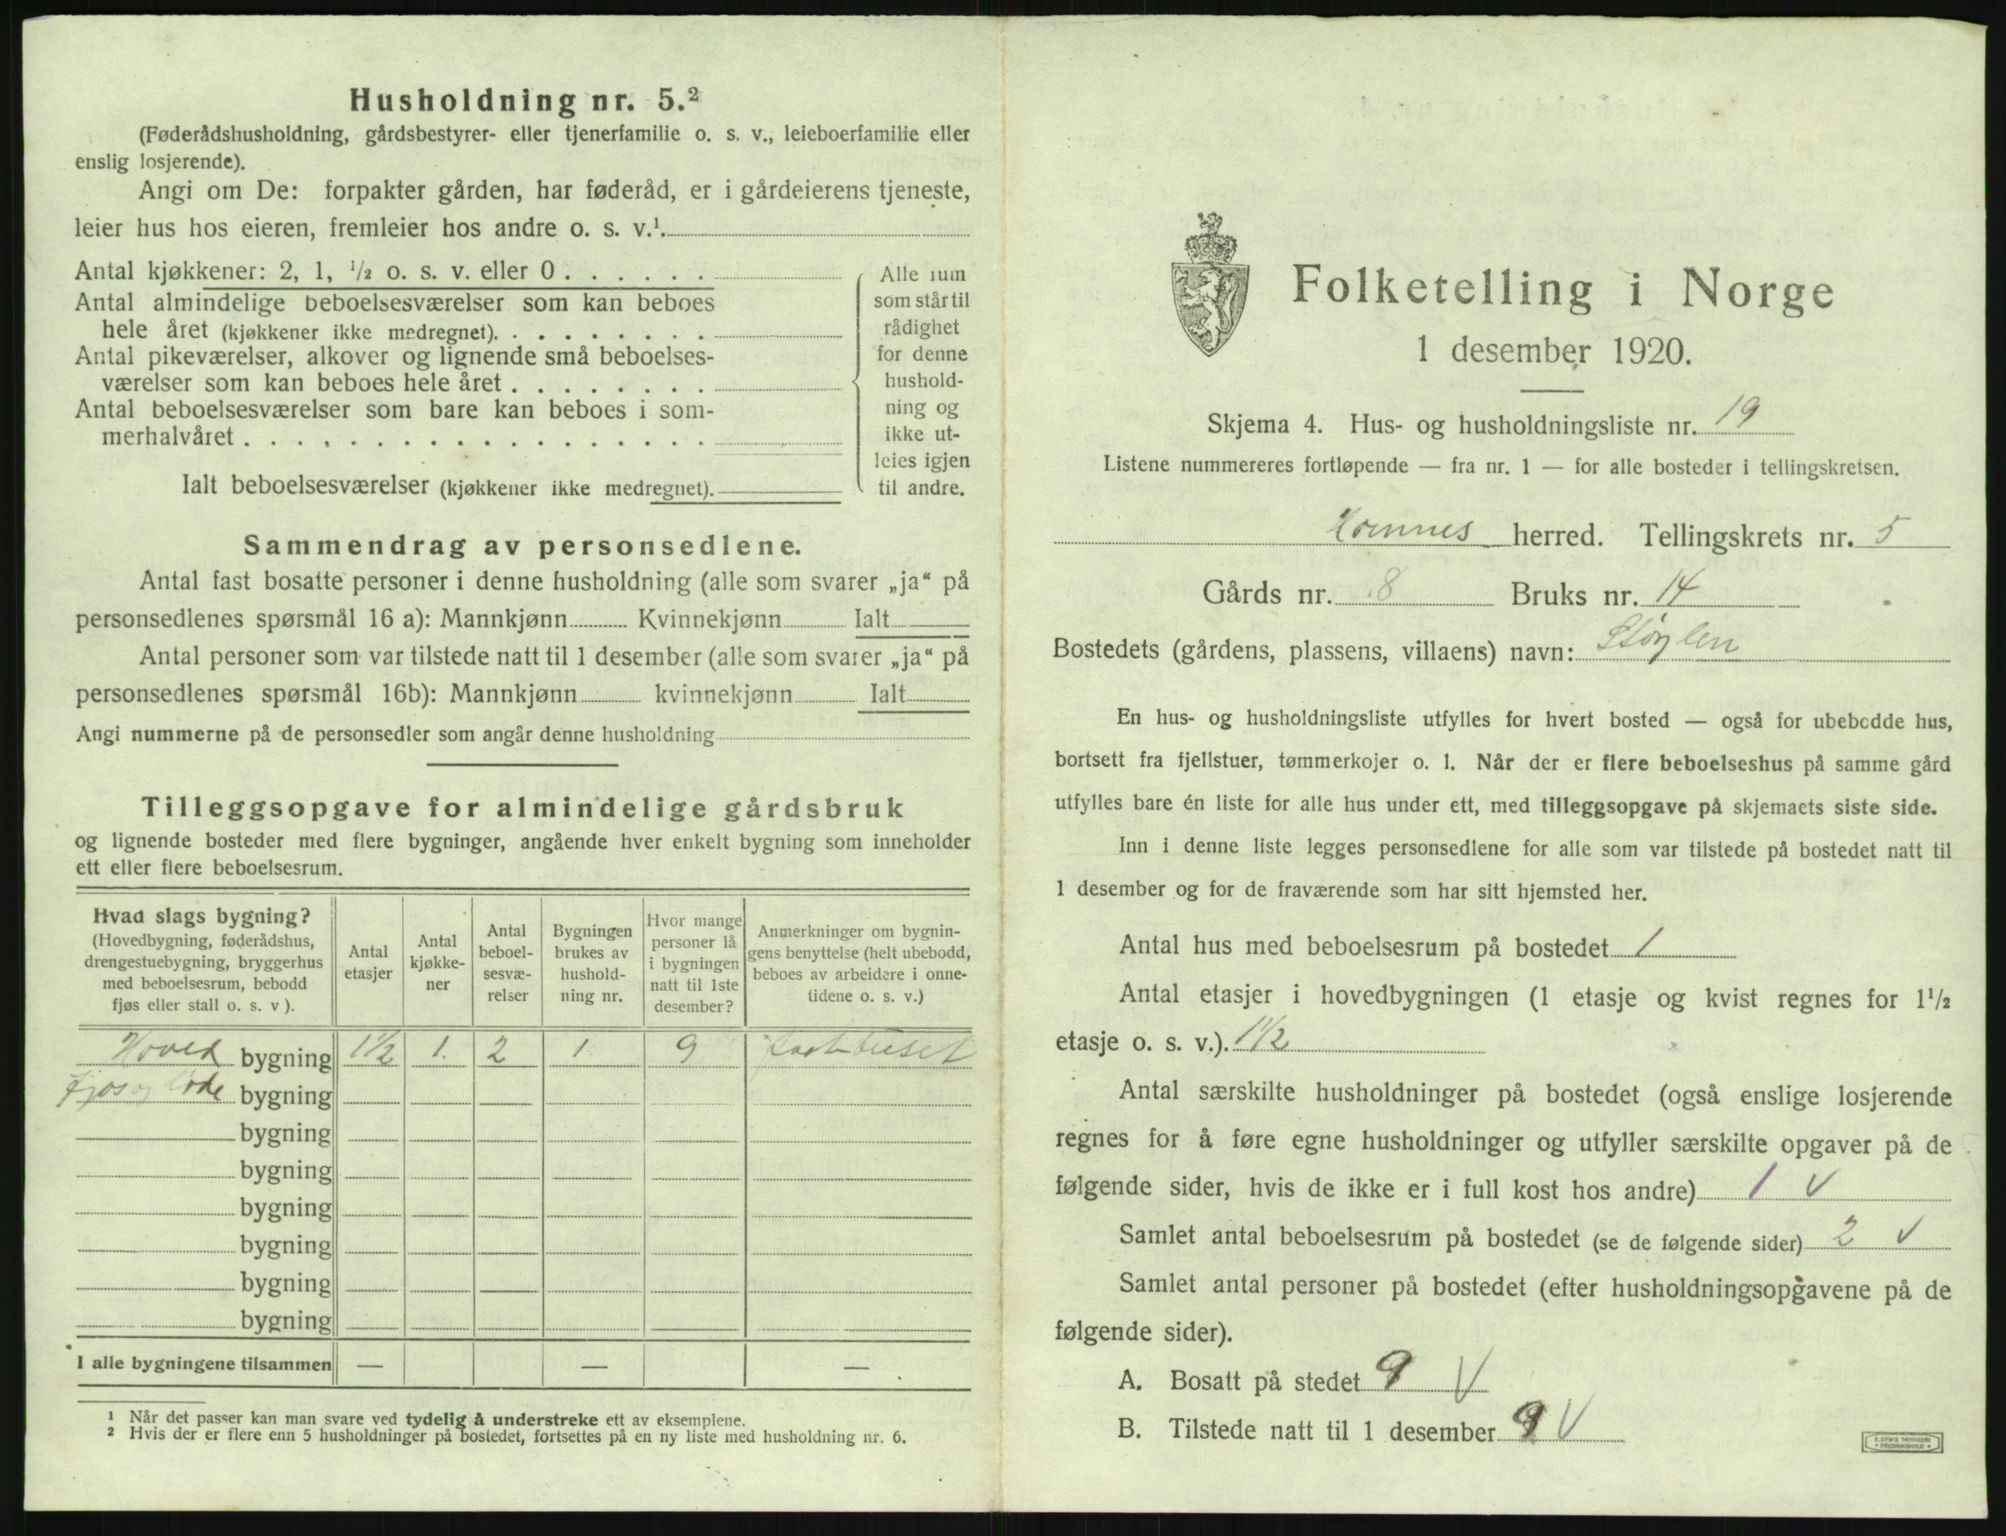 Husholdning nr. 5.²
(Føderådshusholdning, gårdsbestyrer- eller tjenerfamilie o. s. v., leieboerfamilie eller
enslig losjerende).
Angi om De: forpakter gården, har føderåd, er i gårdeierens tjeneste,
leier hus hos eieren, fremleier hos andre o. s. v.¹.
Antal kjøkkener: 2, 1, ½ o. s. v. eller 0 . . . . . .
Antal almindelige beboelsesværelser som kan beboes
hele året (kjøkkener ikke medregnet). . . . . . . . .
Antal pikeværelser, alkover og lignende små beboelses-
værelser som kan beboes hele året . . . . . . . .
Antal beboelsesværelser som bare kan beboes i som-
merhalvåret . . . . . . . . . . . . . . . . . .
Ialt beboelsesværelser (kjøkkener ikke medregnet).
Alle rum
som står til
rådighet
for denne
hushold-
ning og
ikke ut-
leies igjen
til andre.
Sammendrag av personsedlene.
Antal fast bosatte personer i denne husholdning (alle som svarer „ja“ på
personsedlenes spørsmål 16 a): Mannkjønn Kvinnekjønn Ialt
Antal personer som var tilstede natt til 1 desember (alle som svarer „ja“ på
personsedlenes spørsmål 16b): Mannkjønn kvinnekjønn Ialt
Angi nummerne på de personsedler som angår denne husholdning
Tilleggsopgave for almindelige gårdsbruk
og lignende bosteder med flere bygninger, angående hver enkelt bygning som inneholder
ett eller flere beboelsesrum.
Hvad slags bygning?
(Hovedbygning, føderådshus,
drengestuebygning, bryggerhus
med beboelsesrum, bebodd
fjøs eller stall o. s. v ).
Antal
etasjer
Antal
kjøkke-
ner
Antal
beboel-
sesvæ-
relser
Bygningen
brukes av
hushold-
ning nr.
Hvor mange
personer lå
i bygningen
natt til 1ste
desember?
Anmerkninger om bygnin-
gens benyttelse (helt ubebodd,
beboes av arbeidere i onne-
tidene o. s. v.)
Hoved bygning 1½ 1. 2 1 9
Fjos og lode bygning
bygning
bygning
bygning
bygning
bygning
bygning
I alle bygningene tilsammen — — —
¹ Når det passer kan man svare ved tydelig å understreke ett av eksemplene.
² Hvis der er flere enn 5 husholdninger på bostedet, fortsettes på en ny liste med husholdning nr. 6.
Folketelling i Norge
1 desember 1920.
Skjema 4. Hus- og husholdningsliste nr. 19
Listene nummereres fortløpende — fra nr. 1 — for alle bosteder i tellingskretsen.
herred. Tellingskrets nr. 5
Gårds nr. 8 Bruks nr. 14
Bostedets (gårdens, plassens, villaens) navn: Støylen
En hus- og husholdningsliste utfylles for hvert bosted — også for ubebodde hus,
bortsett fra fjellstuer, tømmerkojer o. l. Når der er flere beboelseshus på samme gård
utfylles bare én liste for alle hus under ett, med tilleggsopgave på skjemaets siste side.
Inn i denne liste legges personsedlene for alle som var tilstede på bostedet natt til
1 desember og for de fraværende som har sitt hjemsted her.
Antal hus med beboelsesrum på bostedet 1
Antal etasjer i hovedbygningen (1 etasje og kvist regnes for 1½
etasje o. s. v.). 1½
Antal særskilte husholdninger på bostedet (også enslige losjerende
regnes for å føre egne husholdninger og utfyller særskilte opgaver på de
følgende sider, hvis de ikke er i full kost hos andre) 1 V
Samlet antal beboelsesrum på bostedet (se de følgende sider) 2 V
Samlet antal personer på bostedet (efter husholdningsopgavene på de
følgende sider).
A. Bosatt på stedet 9 V
B. Tilstede natt til 1 desember 9 V